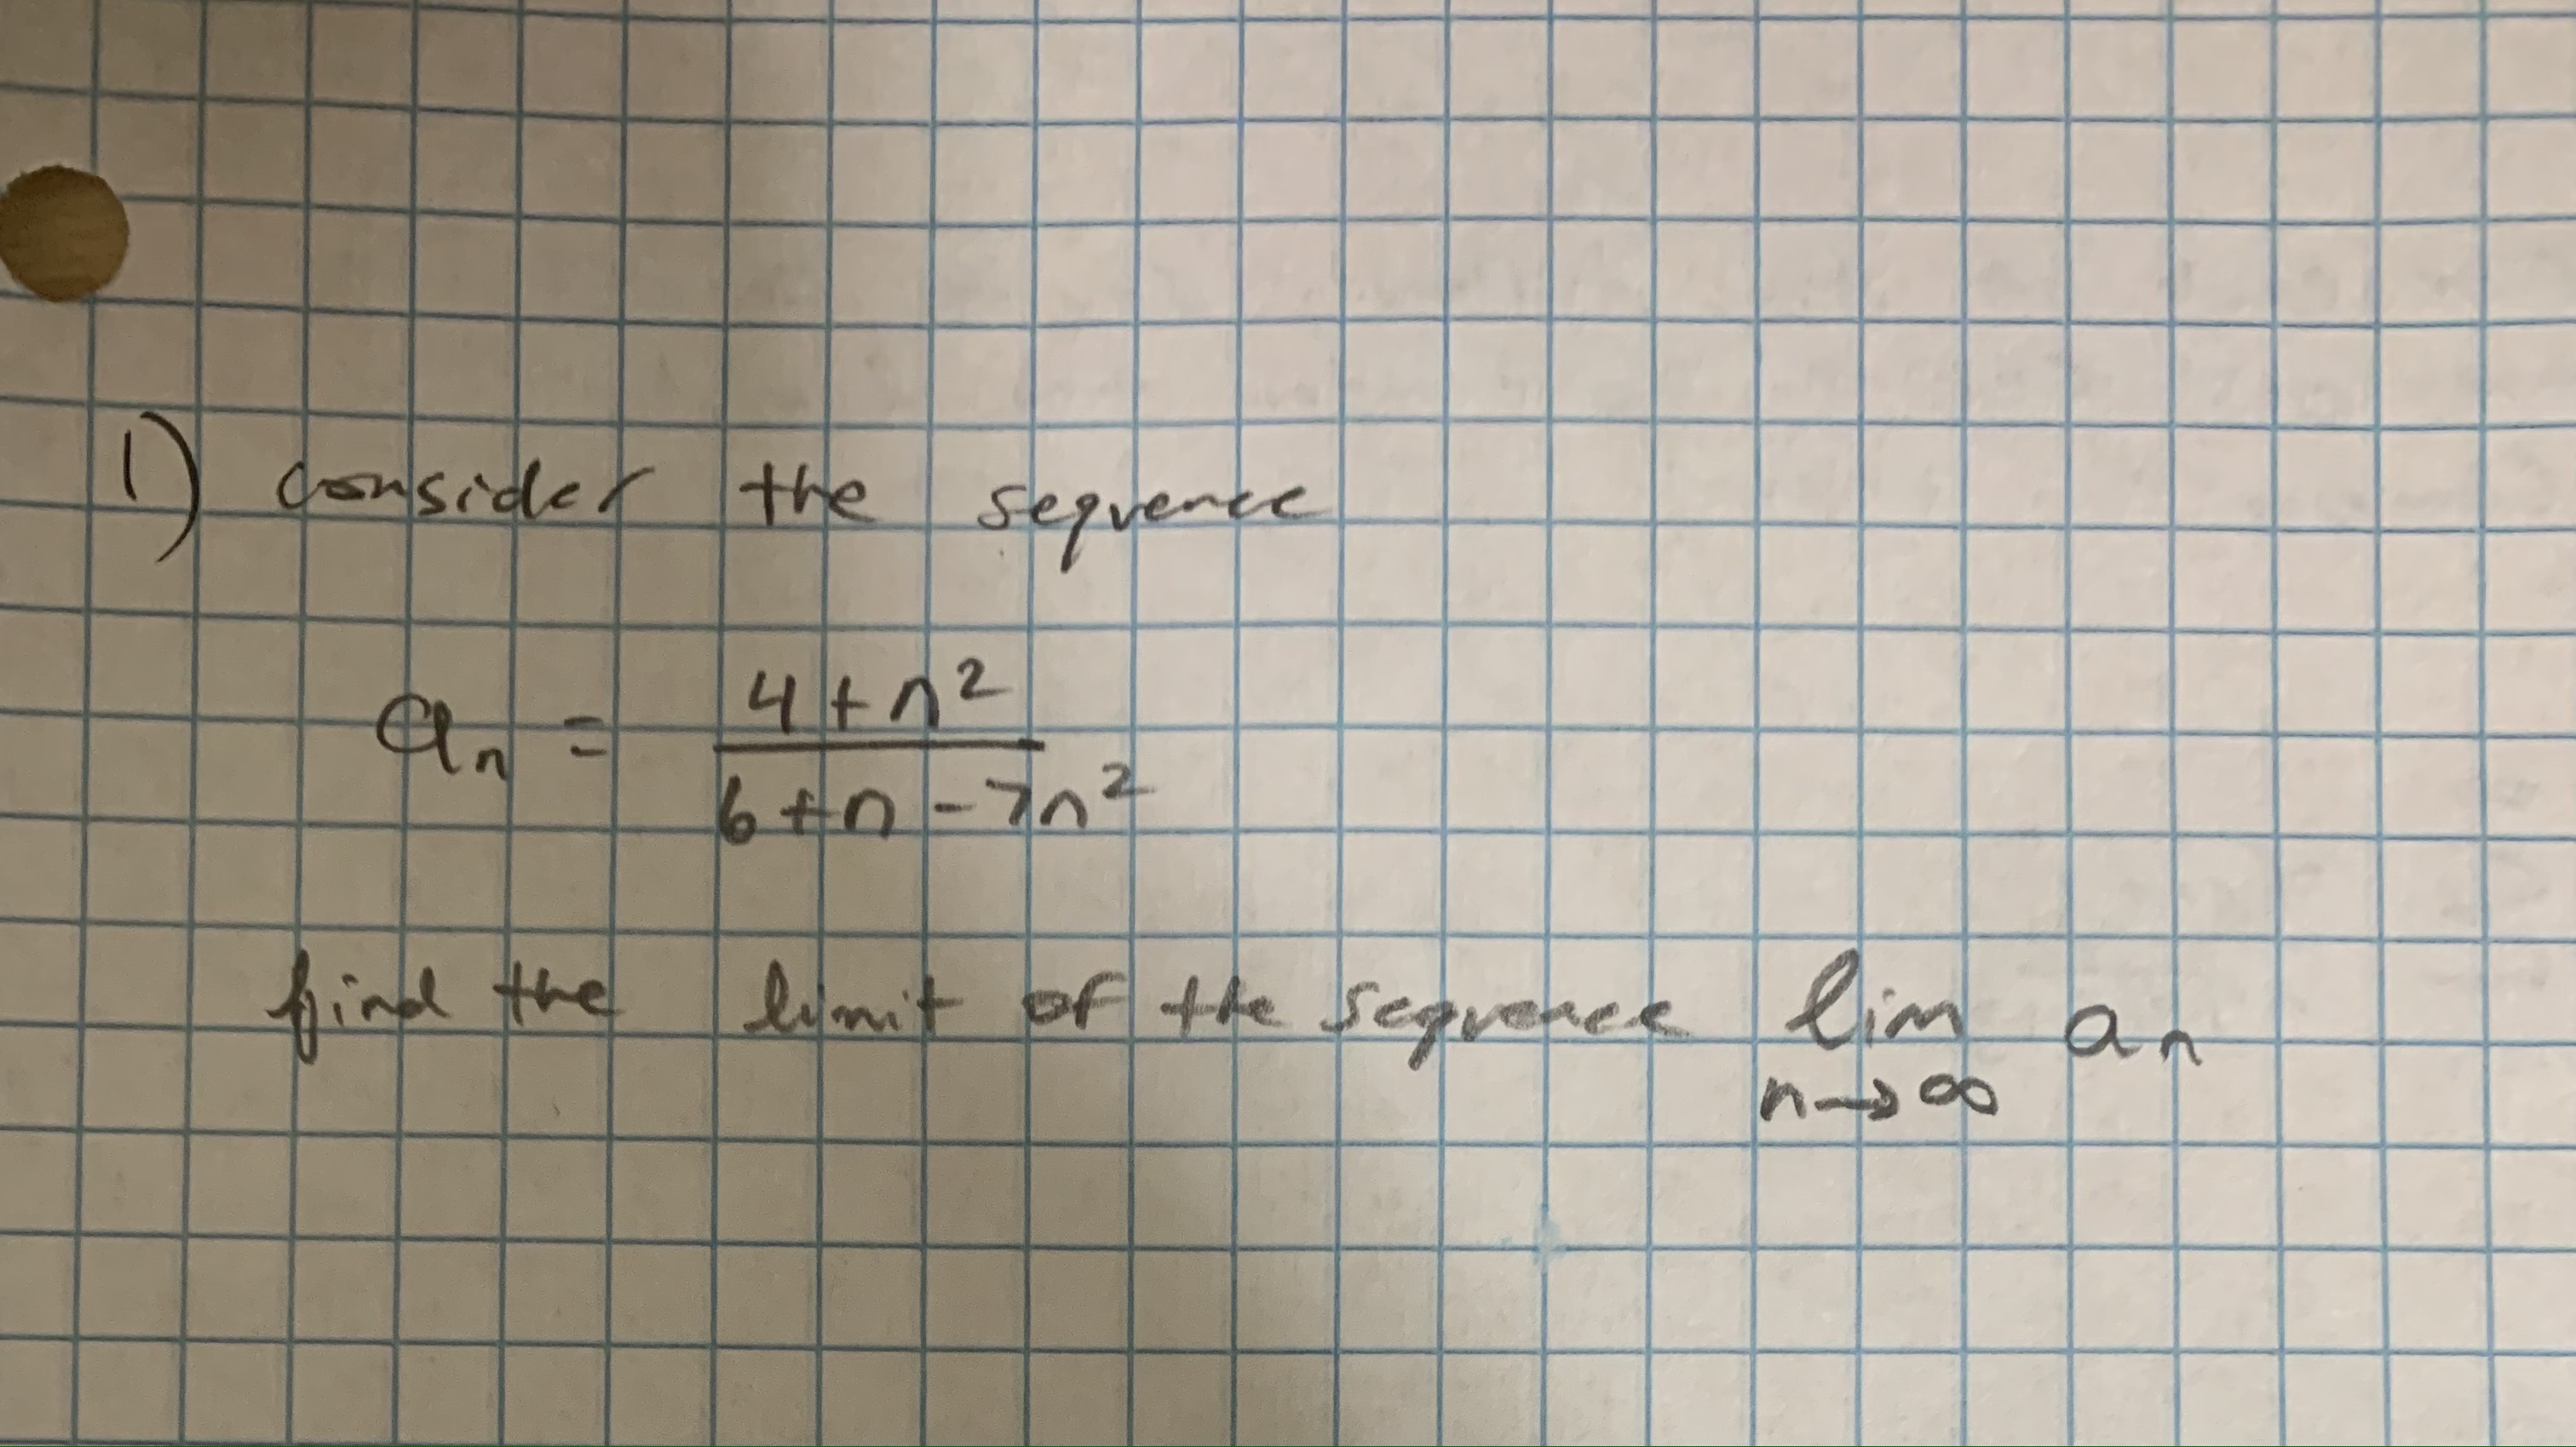 1) consider the sequence
aₙ = (4 + n²) / (6 + n - 7n²)
find the limit of the sequence lim n→∞ aₙ